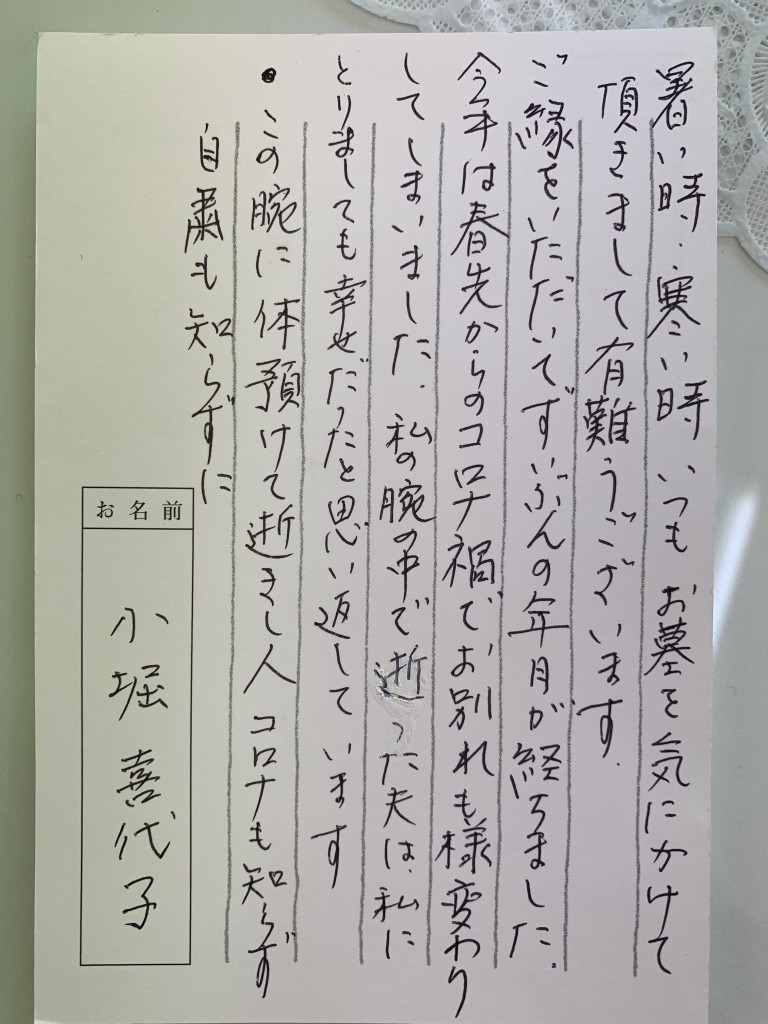 暑い時、寒い時 いつも お墓を気にかけて
頂きまして有難うございます.
ご縁をいただいてずいぶんの年月が経ちました.
今年は春先からのコロナ禍でお別れも様変わり
してしまいました. 私の腕の中で逝った夫は、私に
とりましても幸せだったと思い返して います
・この腕に体預けて逝きし人 コロナも知らず
自粛も知らずに
お名前
小堀 喜代子